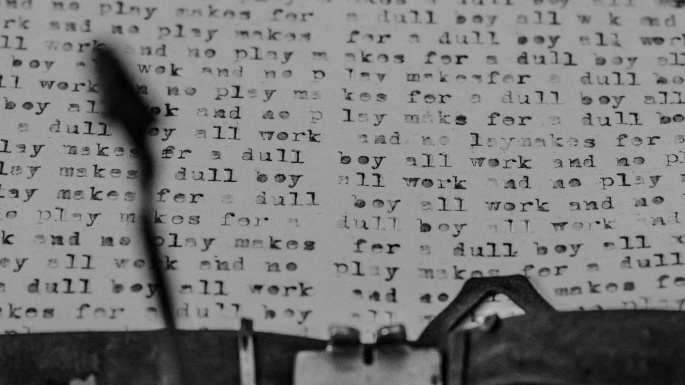 and no play makes for a dull boy all w k and
and no play makes for a dull boy all work
ll work and no play m akes for a dull boy all
boy wok and no p lay makesfor a dull bo
ll work no play ma kes for a dull boy all
boy al ok and no p lay maks for a dull bo
a dull ey all work and no laymakes for a
lay makes fr a dull boy all work and no pl
lay makes dull boy all work and no play
lay makes fer a dull boy all work and no
o play makes for a dull boy all work and
k and no play makes for a dull boy all
ey all work and no play makes for a dull
a dull boy all work and no makes fo
kes for a dull boy play